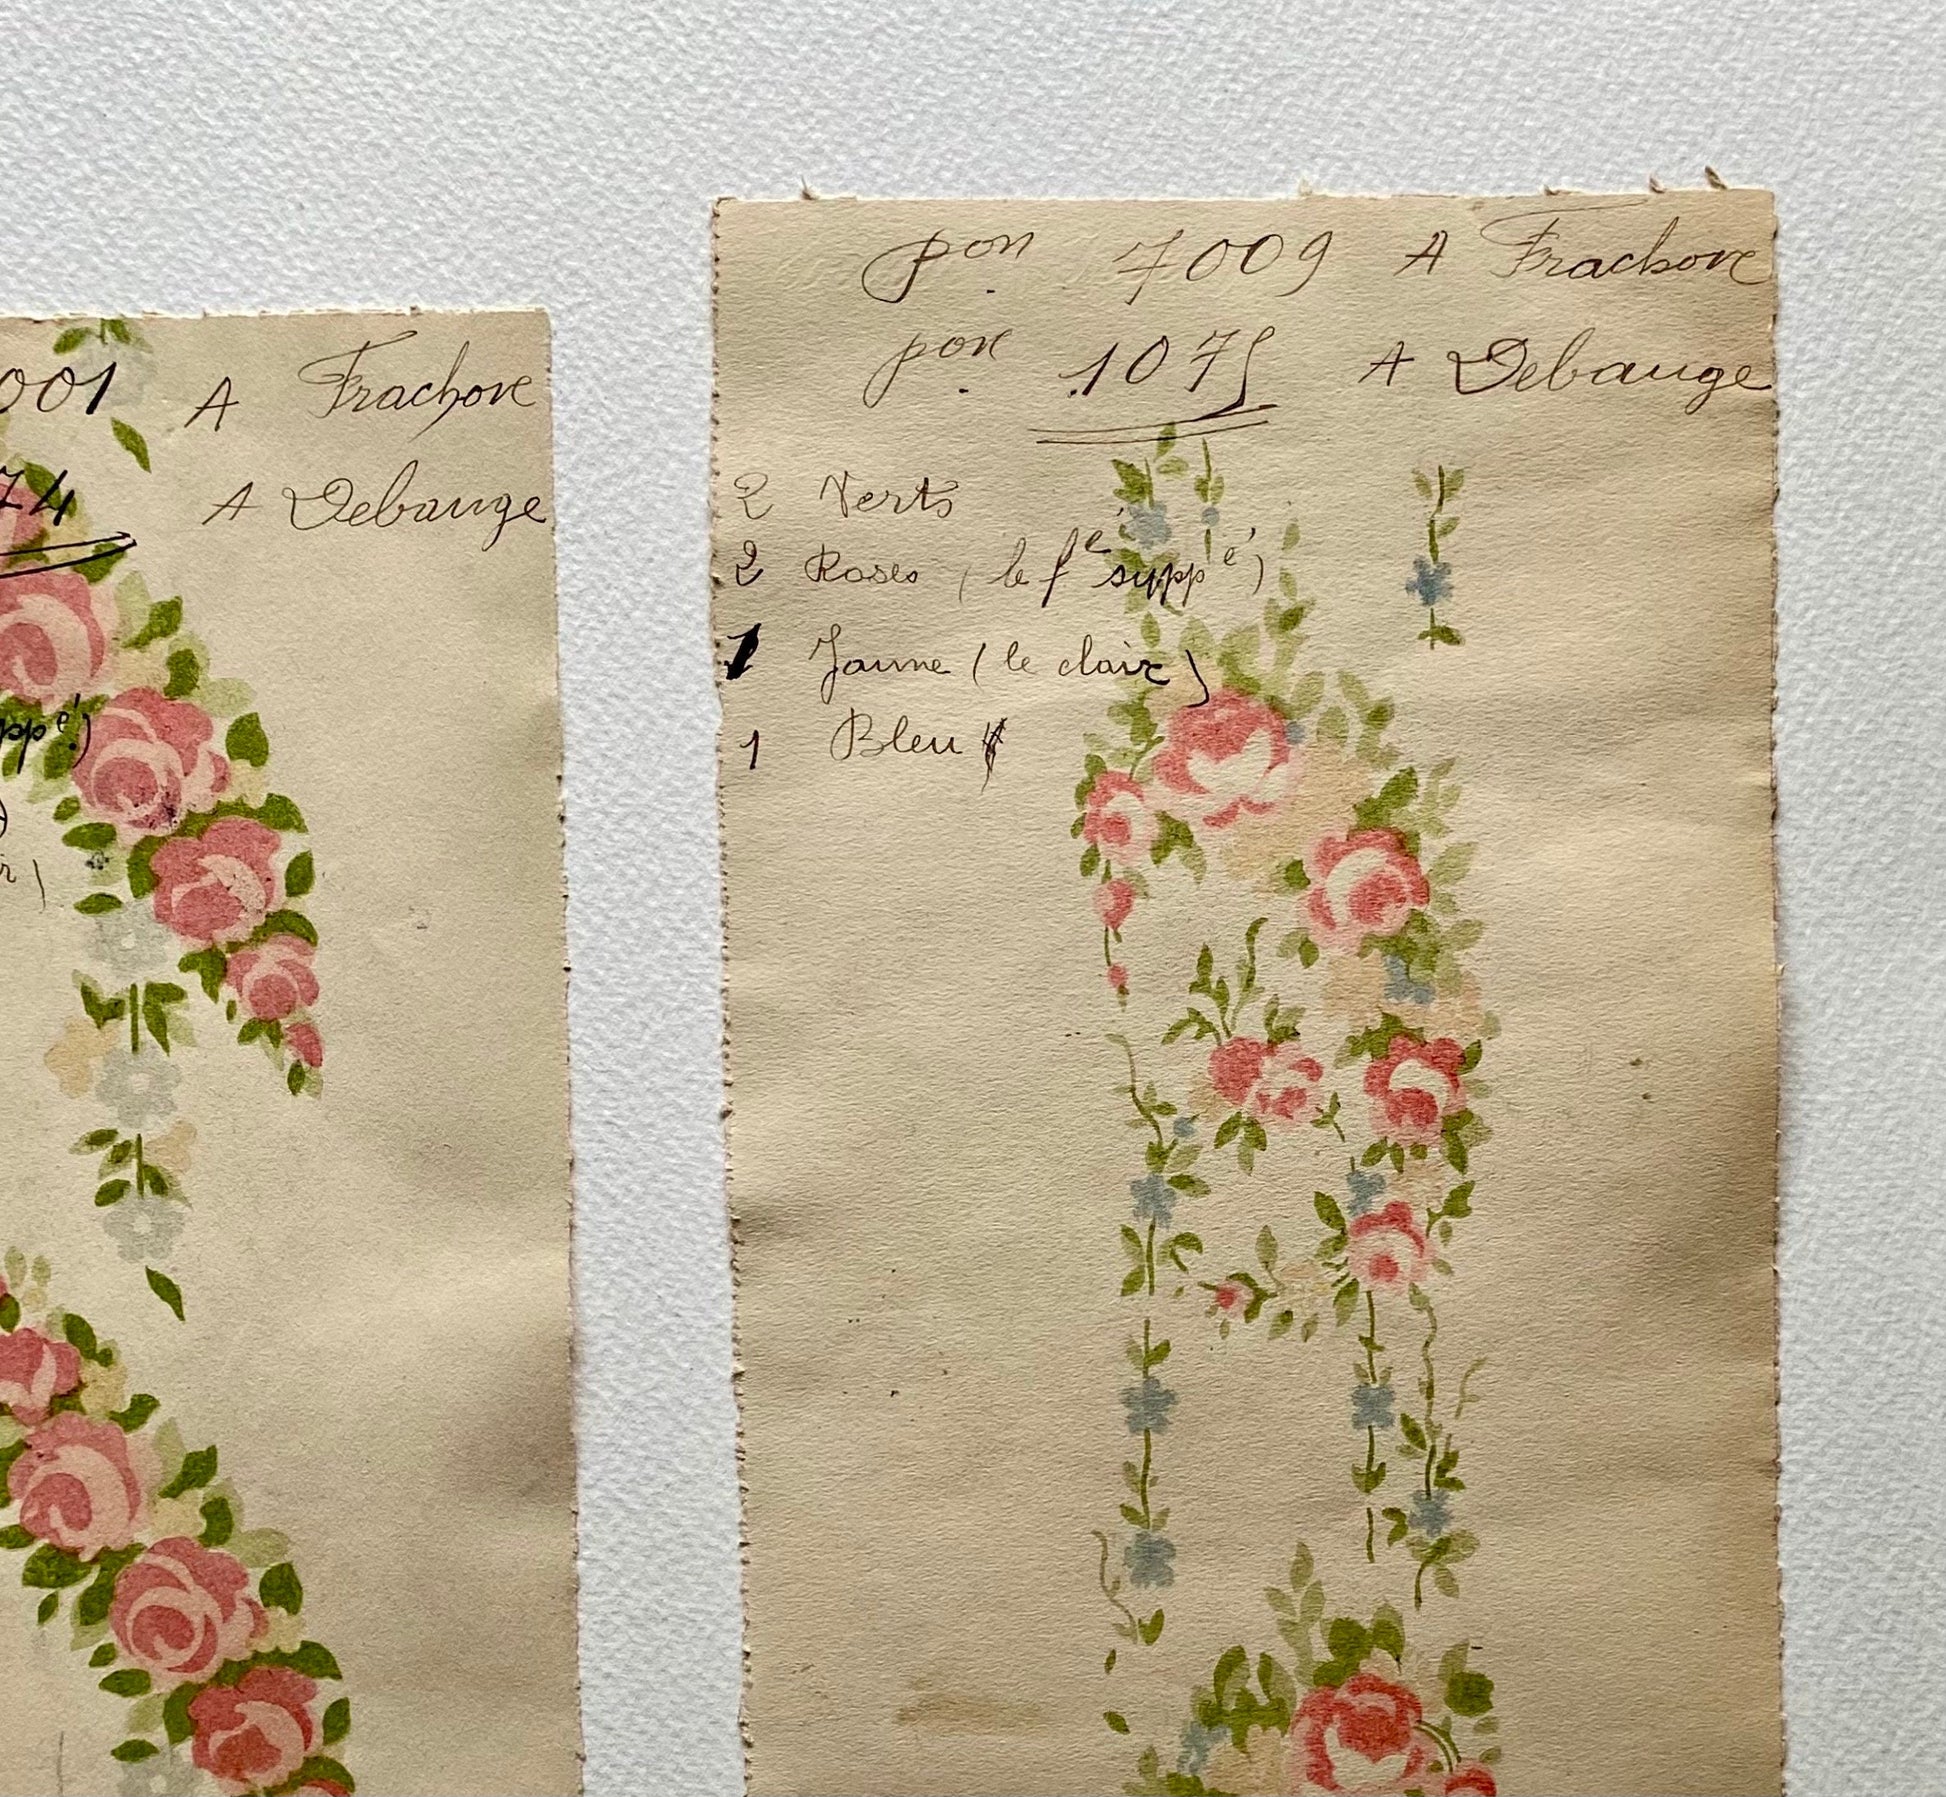 001 A Frachon
74 A Debauge
ppé)
r)
pon 7009 A Frachon
pon 1075 A Debauge
2 Verts
2 Roses (le fé suppé)
1 Jaune (le clair)
1 Bleu